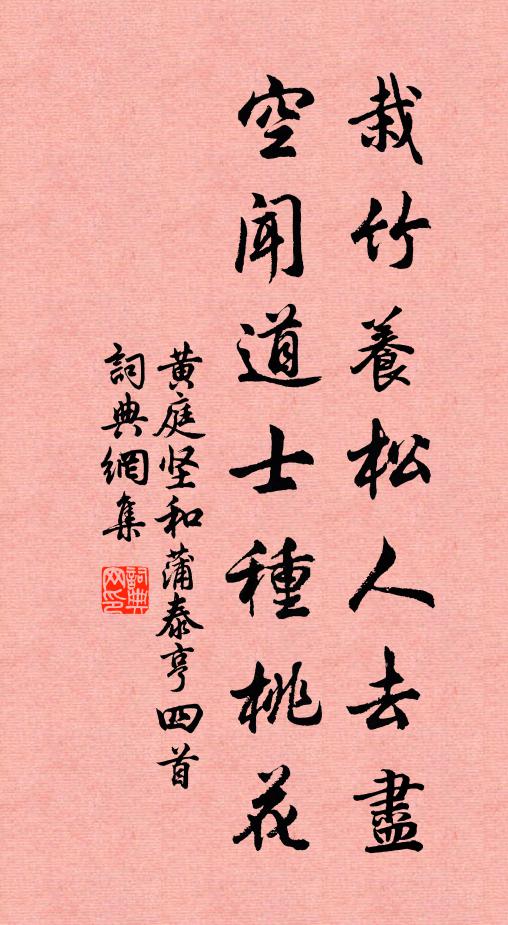 栽竹養松人去盡
空聞道士種桃花
黄庭坚和蒲泰亨四首
詞典網集
詞典网印